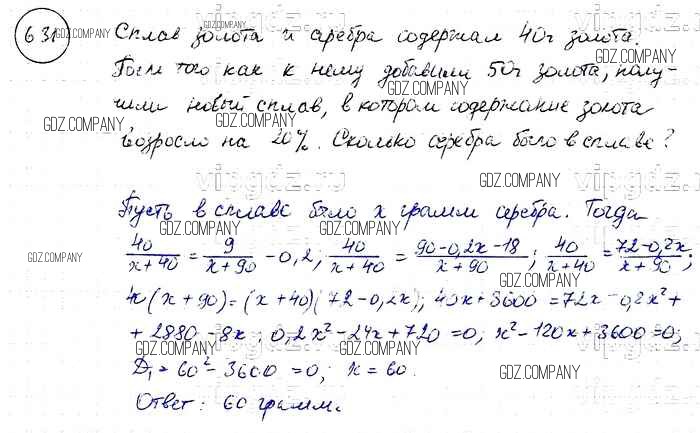 631 Сплав золота и серебра содержал 40г золота.
После того как к нему добавили 50г золота, полу-
чили новый сплав, в котором содержание золота
возросло на 20%. Сколько серебра было в сплаве?
Пусть в сплаве было x грамм серебра. Тогда
40/(x+40) = 9/(x+90) - 0,2; 40/(x+40) = (90-0,2x-18)/(x+90); 40/(x+40) = (72-0,2x)/(x+90);
(x+90) = (x+40)(72-0,2x); 40x+3600 = 72x-0,2x²+
+2880-8x; 0,2x²-24x+720=0; x²-120x+3600=0;
D₁ = 60²-3600=0; x=60.
Ответ: 60 грамм.
GDZ.COMPANY
GDZ.COMPANY
GDZ.COMPANY
GDZ.COMPANY
GDZ.COMPANY
GDZ.COMPANY
GDZ.COMPANY
GDZ.COMPANY
GDZ.COMPANY
GDZ.COMPANY
GDZ.COMPANY
GDZ.COMPANY
vipgdz.ru
vipgdz.ru
vipgdz.ru
vipgdz.ru
vipgdz.ru
vipgdz.ru